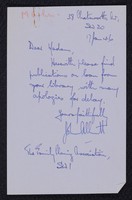 Dear Madam,
Herewith please find
publications on loan from
your library with many
apologies for delay.
Yours faithfully
The Family Planning Association,
SW1